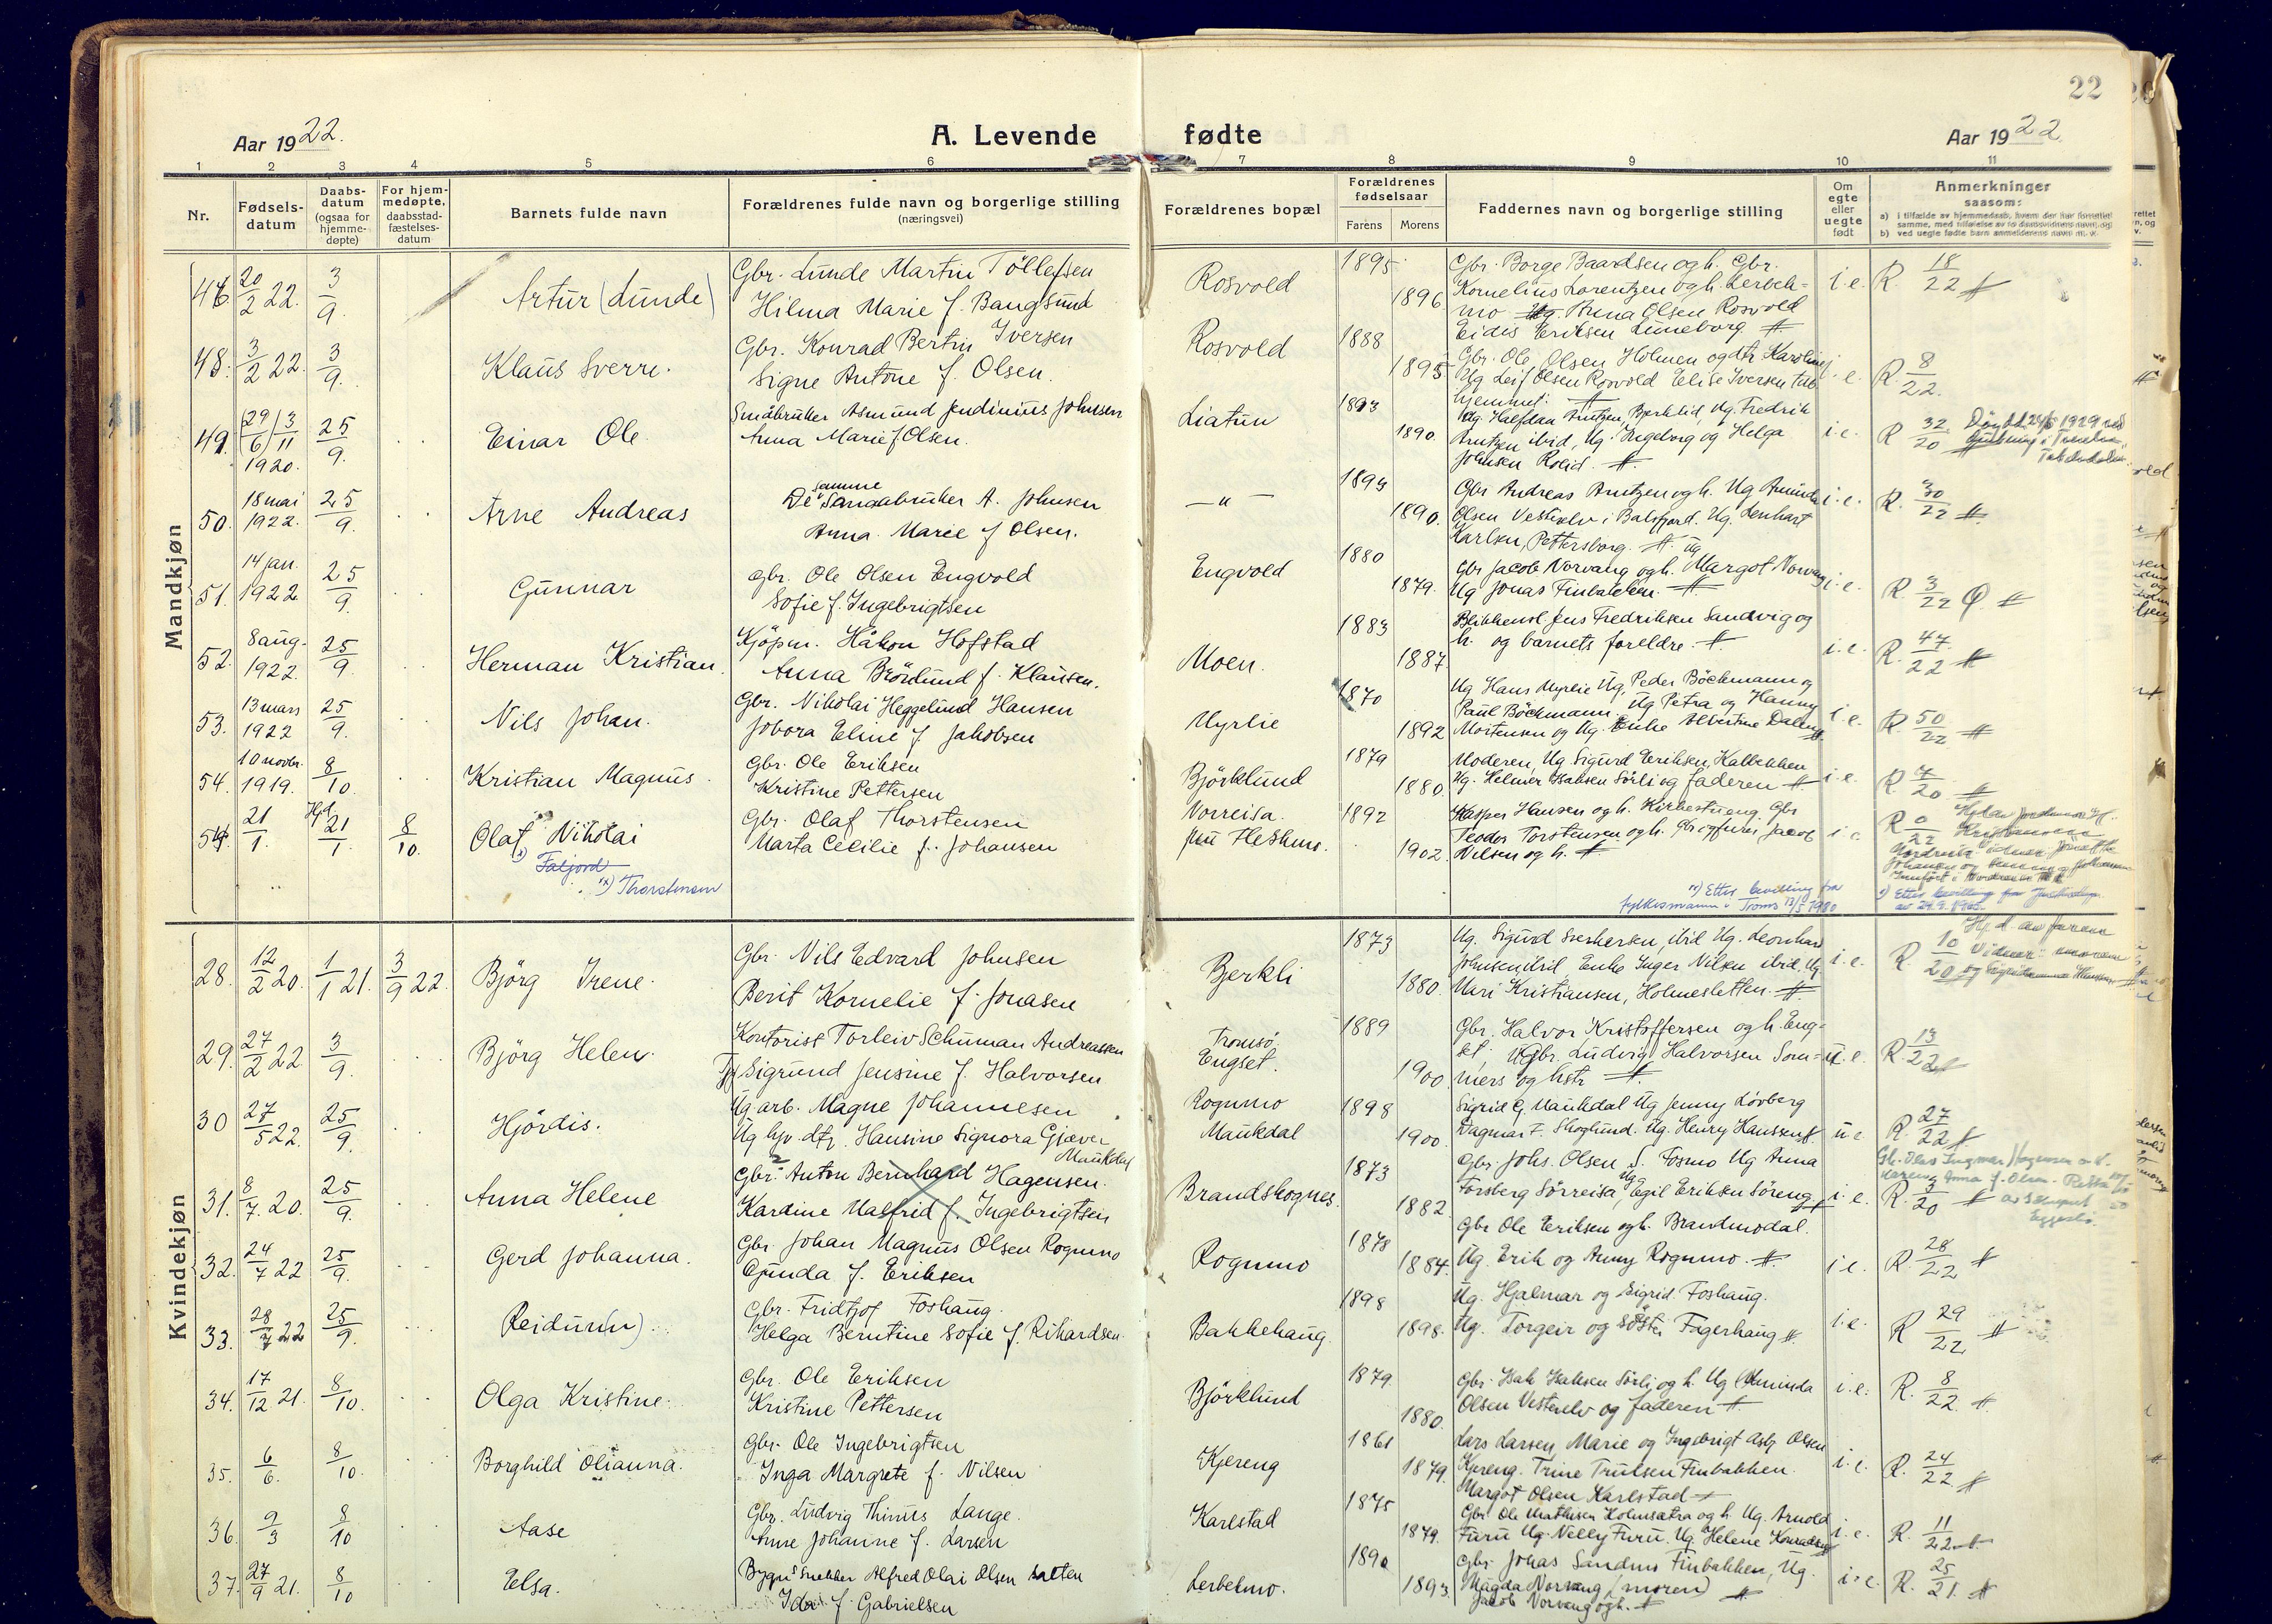 22
Aar 1922.
A. Levende fødte
Aar 1922.
1 2 3 4 5 6 7 8 9 10 11
Nr.
Fødsels-
datum
Daabs-
datum
(ogsaa for
hjemme-
døpte)
For hjem-
medøpte,
daabsstad-
fæstelses-
datum
Barnets fulde navn
Forældrenes fulde navn og borgerlige stilling
(næringsvei)
Forældrenes bopæl
Forældrenes
fødselsaar
Farens Morens
Faddernes navn og borgerlige stilling
Om
egte
eller
uegte
født
Anmerkninger
saasom:
a) i tilfælde av hjemmedaab, hvem der har forrettet
samme, med tilføielse av to daabsvidners navn, og
b) ved uegte fødte barn anmelderens navn m. v.
Mandkjøn
46. 20/2 22. 3/9. Artur (Lunde)
Gbr. Lunde Martin Tollefsen
Hilma Marie f. Bangsund
Rosvold 1895 1896
Gbr. Borge Baardsen og h. Gbr.
Kornelius Lorentzen og h. Lerbek-
mo Anna Olsen Rosvold
Eidis Eriksen Luneborg
i. e. R. 18/22
48. 3/2 22. 3/9. Klaus Sverre.
Gbr. Konrad Bertin Iversen
Signe Antone f. Olsen.
Rosvold 1888 1895
Gbr. Ole Olsen Holmen og dtr Karoline
Ug Leif Olsen Rosvold Elise Iversen tub.
hjemmet.
i. e. R. 8/22.
49. (29/6) 3/11 1920. 25/9. Einar Ole
Småbruker Asmund Jendinius Johnsen
Anna Marie f Olsen.
Liatun 1893 1890.
Ug. Halfdan Arntzen, Bjerklid, Ug. Fredrik
Arntzen ibid, Ug. Ingeborg og Helga
Johnsen Rolid.
i. e. R 32/20
50. 18 mai 1922. 25/9. Arne Andreas
De samme Smaabruker A. Johnsen
Anna Marie f Olsen.
— " — 1893 1890.
Gbr Andreas Arntzen og h. Ug Aminda
Olsen Vesterelv i Balsfjord. Ug. Lenhart
Karlsen, Pettersborg.
i. e. R. 30/22
51. 14 jan. 1922 25/9. Gunnar
Gbr. Ole Olsen Engvold
Sofie f. Ingebrigtsen
Engvold 1880 1879.
Gbr Jacob Norvang og h. Ug Margot Norvang
Ug Jonas Finbakken.
i. e. R 3/22
52. 8 aug. 1922. 25/9. Herman Kristian
Kjöpm. Håkon Hofstad
Anna Brönlund f. Klausen.
Moen. 1883 1887.
Blikkensl. Jens Fredriksen Sandvig og
h. og barnets foreldre.
i. e. R. 47/22
53. 13 mars 1922 25/9. Nils Johan.
Gbr. Nikolai Heggelund Hansen
Jobora Eline f Jakobsen
Myrlie 1870 1892
Ug Hans Myrlie Ug, Peder Böckmann og
Paul Böckmann, Ug Petra og Hanny
Mortensen og Ug. Enke Albertine
i. e. R. 50/22
54. 10 novbr. 1919. 8/10. Kristian Magnus.
Gbr. Ole Eriksen
Kristine Pettersen
Björklund 1879 1880.
Moderen, Ug. Sigurd Eriksen, Kalbekken
Ug. Helmer Isaksen Sörli og faderen
i. e. R. 7/20.
54. 21/1. Hjd 21/1 8/10. Olaf Nikolai
Faljord
xx) Thorstensen
Gbr. Olaf Thorstensen
Marta Cecilie f. Johansen
Norreisa. 1892 1902.
Kasper Hansen og h. Kirkestueng. Gbr
Teodor Torstensen og h. Jacob
Nilsen og h.
i. e. R 0/22
xx) Etter bevilling fra
fylkesmannen i Troms 13/5 1980
x) Etter bevilling fra
Kvindekjøn
28. 12/2 20. 1/1 21. 3/9 22. Björg Irene.
Gbr. Nils Edvard Johnsen
Berit Kornelie f. Jonasen
Bjerkli 1873 1880.
Ug. Sigurd ibid Ug. Leonhard
Johnsen ibid, Enke Inger Nilsen ibid, Ug.
Mari Kristiansen, Holmesletten.
i. e. R. 10/20
29. 27/2 22. 3/9. Björg Helen.
Kontorist Torleiv Schuman Andreassen
Tj. Sigrund Jensine f. Halvorsen
Tromsö.
Engset. 1889 1900.
Gbr. Halvor Kristoffersen og h. Eng-
set. Gbr. Ludvig Halvorsen Som-
mers og hstr
u. e. R. 13/22
30 27/5 22. 25/9. Hjördis.
Ug. arb. Magne Johannesen
Ug hjv. dtr. Hansine Signora Gjæver
Maukdal
Rognmo
Maukdal 1898 1900.
Sigrid G. Maukdal Ug Jenny Lövberg
Dagmar F. Skoglund. Ug. Henry Hanssen
u. e. R. 27/22
31. 8/7. 20. 25/9. Anna Helene
Gbr. Anton Bernhard Hagensen.
Kardine Malfrid f. Ingebrigtsen
Brandskognes. 1873 1882.
Gbr. Johs. Olsen S. Fosmo Ug Anna
Forsberg Sörreisa, Ug Egil Eriksen Söreng
i. e. R. 3/20
32. 24/7 22 25/9. Gerd Johanna.
Gbr. Johan Magnus Olsen Rognmo
Gjunda f. Eriksen
Rognmo 1878 1884.
Gbr Ole Eriksen og h. Brandmodal.
Ug. Erik og Anny Rognmo.
i e. R. 28/22
33. 28/7 22 25/9. Reidun(n).
Gbr. Fridtjof Foshaug.
Helga Berntine Sofie f. Rihardsen
Bakkehaug. 1898 1898.
Ug. Hjalmar og Sigrid Foshaug.
Ug. Torgeir og söster Fagerhaug
i. e. R 29/22
34. 17/12 21. 8/10. Olga Kristine.
Gbr. Ole Eriksen
Kristine Pettersen
Björklund 1879. 1880.
Gbr. Isak Isaksen Sörli og h. Ug (Aminda
Olsen Vesterelv og faderen
i. e. R. 8/22
35. 6/6. 8/10. Borghild Olianna.
Gbr. Ole Ingebrigtsen
Inga Margrete f. Nilsen
Kjereng 1861 1879.
Lars Larsen, Marie og Ingebrigt Asbj Olsen
Kjereng. Trine Trulsen Finbakken.
Margot Olsen Karlstad
i. e. R. 24/22
36. 9/3 8/10 Aase
Gbr. Ludvig Thinus Lange.
Anne Johanne f. Larsen
Karlstad 1875 1879.
Gbr. Ole Mathisen Holmsætra og h. Ug. Arnold
Furu Ug. Nelly Furu. Ug. Helene
i. e. R. 11/22
37. 27/9 21. 8/10 Elsa.
Bygn.snekker Alfred Olai Olsen
Ida f. Gabrielsen
Lerbekmo. 1890 1893.
Gbr. Jonas Sandmo Finbakken, Ug.
Magda Norvang (moren)
Jacob Norvang og h.
i. e. R. 25/21.